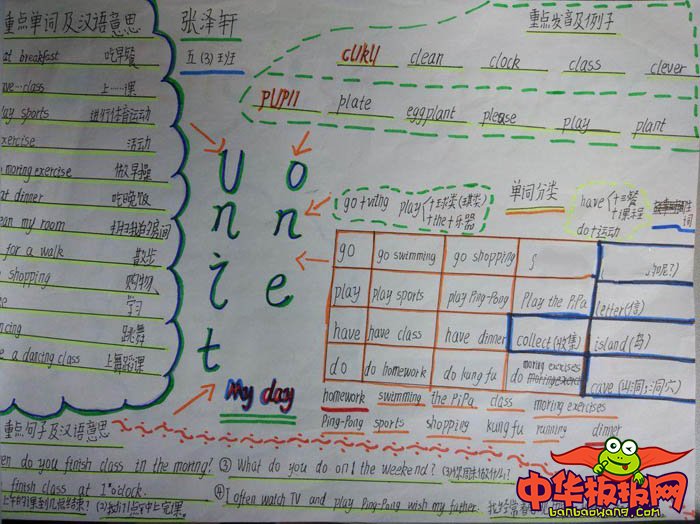 重点单词及汉语意思
at breakfast 吃早餐
ve…class 上……课
lay sports 进行体育运动
xercise 活动
moring exercise 做早操
at dinner 吃晚饭
ean my room 打扫我的房间
for a walk 散步
shopping 购物
学习
ncing 跳舞
e a dancing class 上舞蹈课
张泽轩
五(3)班
重点发音及例子
clean clock class clever
PUPII plate eggplant please play plant
Unit
one
My day
单词分类
go+ving play +球类(棋类)
+the+乐器
have +三餐
+课程
do+运动
go go swimming go shopping
play play sports play Ping-Pong Play the PiPa letter(信)
have have class have dinner collect(收集) island(岛)
do do homework do kung fu do moring exercises cave(山洞;洞穴)
homework swimming the PiPa class moring exercises
Ping-Pong sports shopping kung fu running dinner
重点句子及汉语意思
en do you finish class in the moring? ③ What do you do on the weekend?
finish class at 1 o'clock. ④ I often watch TV and play Ping-Pong wish my father.
中华板报网
banbaowang.com